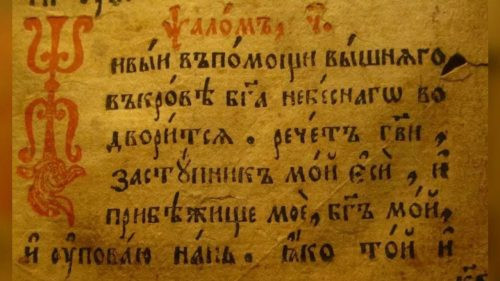 Ѱало́мъ, ч҃.
Живы́й въпо́мощи вы́шнѧго
въкро́вѣ бг҃а небе́снагѡ во
двори́тсѧ . рече́тъ гв҃и ,
засту́пникъ мо́й є҆сѝ , и҆
прибѣ́жище моѐ , бг҃ъ мо́й ,
и҆ ᲂу҆пова́ю на́нь . ꙗ҆́ко то́й и҆